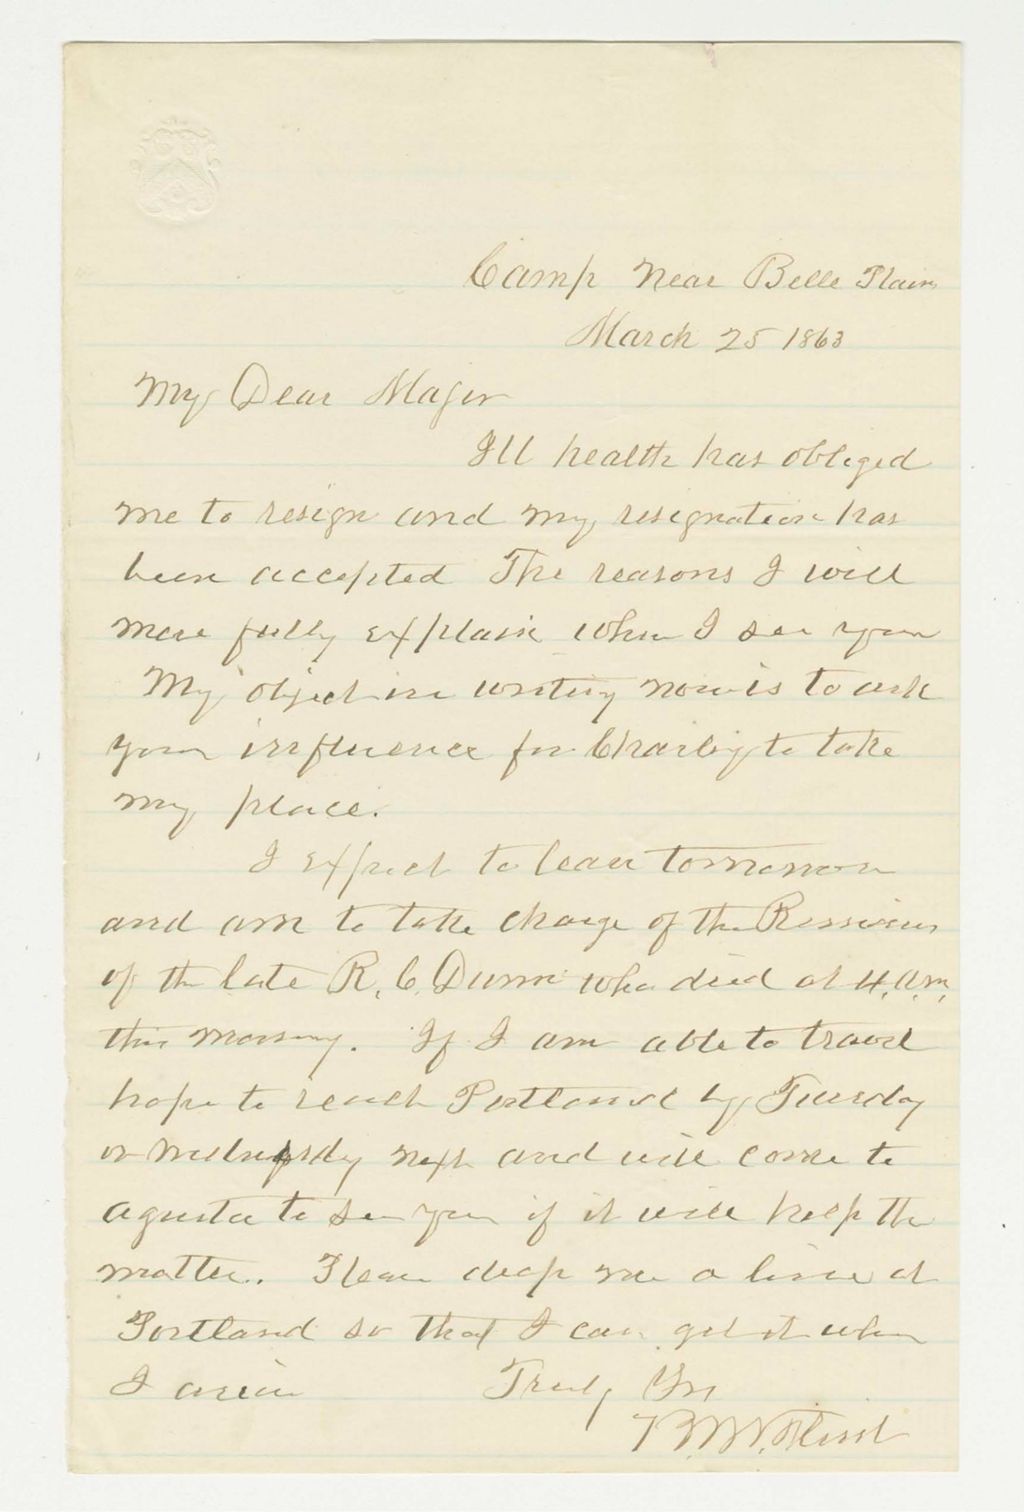 Camp Near Belle Plain
March 25 1863
My Dear Major
Ill health has obliged
me to resign and my resignation has
been accepted The reasons I will
more fully explain when I see you
My object in writing now is to ask
your influence for Charley to take
my place.
I expect to leave tomorrow
and am to take charge of the
of the late R. C. Dunn who died at 4. A.M.
this morning. If I am able to travel
hope to reach Portland by Tuesday
or Wednesday next and will come to
agusta to see you if it will help the
matter. Please drop me a line at
Portland so that I can get it when
I arive Truly Yrs